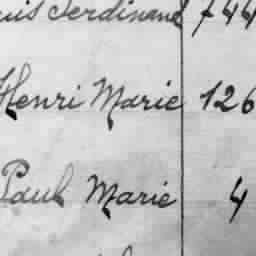 Ferdinand 744
Henri Marie 126
Paul Marie 4